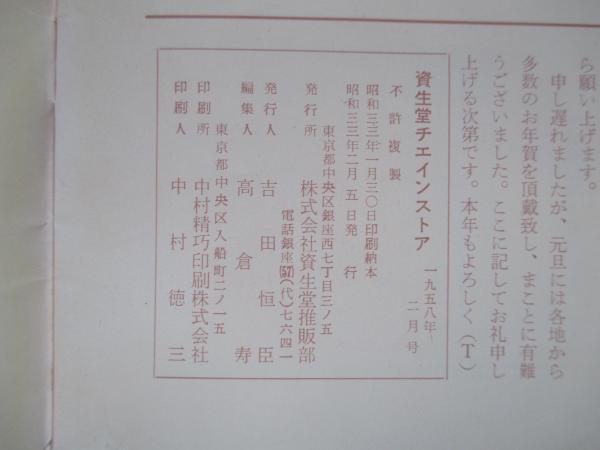 ら願い上げます。
申し遅れましたが、元旦には各地から
多数のお年賀を頂戴致し、まことに有難
うございました。ここに記してお礼申し
上げる次第です。本年もよろしく(T)
資生堂チエインストア 一九五八年二月号
不許複製
昭和三三年一月三〇日印刷納本
昭和三三年二月五日発行
東京都中央区銀座西七丁目三ノ五
発行所 株式会社資生堂推販部
電話銀座(57)(代)七六四一
発行人 吉田恒臣
編集人 高倉寿
東京都中央区入船町二ノ一五
印刷所 中村精巧印刷株式会社
印刷人 中村徳三